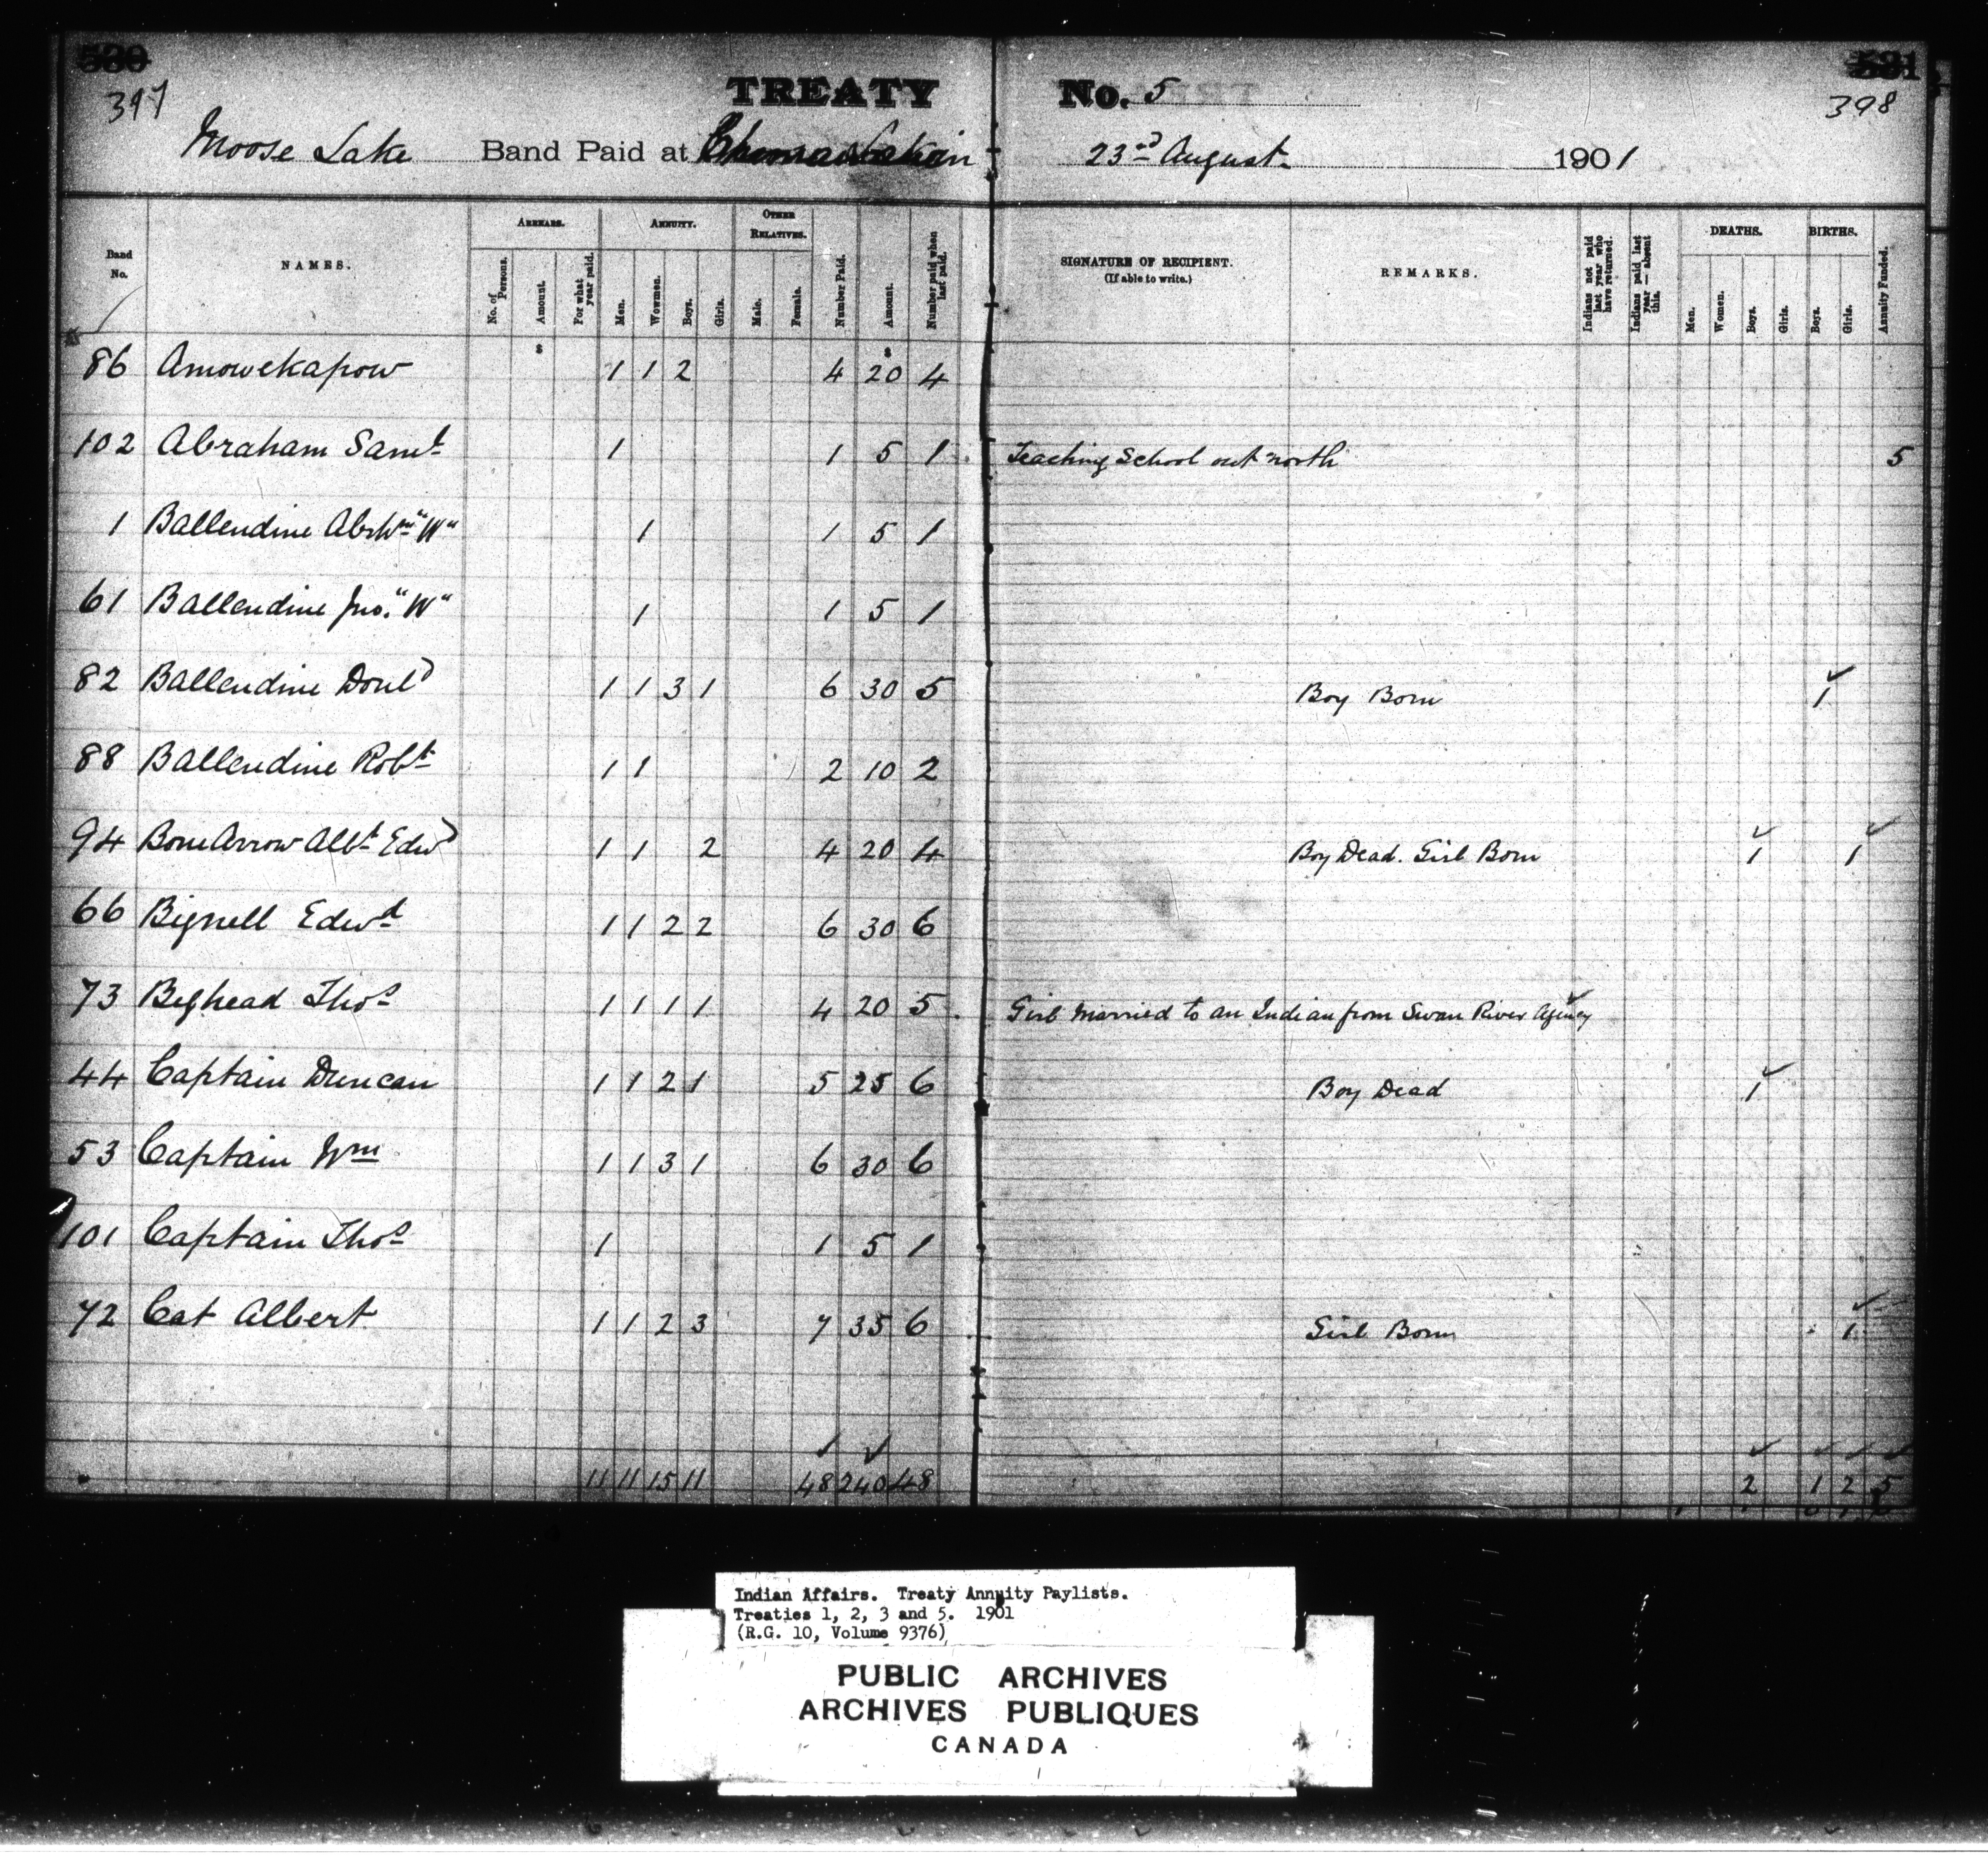 530 531
397 TREATY No. 5 398
Moose Lake Band Paid at 23rd August 1901
Band No. NAMES. ARREARS. ANNUITY. OTHER RELATIVES. Number Paid. Amount. Number paid when last paid. SIGNATURE OF RECIPIENT. (If able to write.) REMARKS. Indians not paid last year who have returned. Indians paid last year — absent this. DEATHS. BIRTHS. Annuity Funded.
No. of Persons. Amount. For what year paid. Men. Wowmen. Boys. Girls. Male. Female. Men. Women. Boys. Girls. Boys. Girls.
$ $
86 Amowekapow 1 1 2 4 20 4
102 Abraham Saml 1 1 5 1 Teaching School out north 5
1 Ballendine Abrhm "W" 1 1 5 1
61 Ballendine Jno. "W" 1 1 5 1
82 Ballendine Donld 1 1 3 1 6 30 5 Boy Born 1
88 Ballendine Robt 1 1 2 10 2
94 Bow Arrow Albt Edwd 1 1 2 4 20 4 Boy Dead. Girl Born 1 1
66 Bignell Edwd 1 1 2 2 6 30 6
73 Bighead Thos 1 1 1 1 4 20 5 Girl Married to an Indian from Swan River Agency
44 Captain Duncan 1 1 2 1 5 25 6 Boy Dead 1
53 Captain Wm 1 1 3 1 6 30 6
101 Captain Thos 1 1 5 1
72 Cat Albert 1 1 2 3 7 35 6 Girl Born 1
11 11 15 11 48 240 48 2 1 2 5
Indian Affairs. Treaty Annuity Paylists.
Treaties 1, 2, 3 and 5. 1901
(R.G. 10, Volume 9376)
PUBLIC ARCHIVES
ARCHIVES PUBLIQUES
CANADA